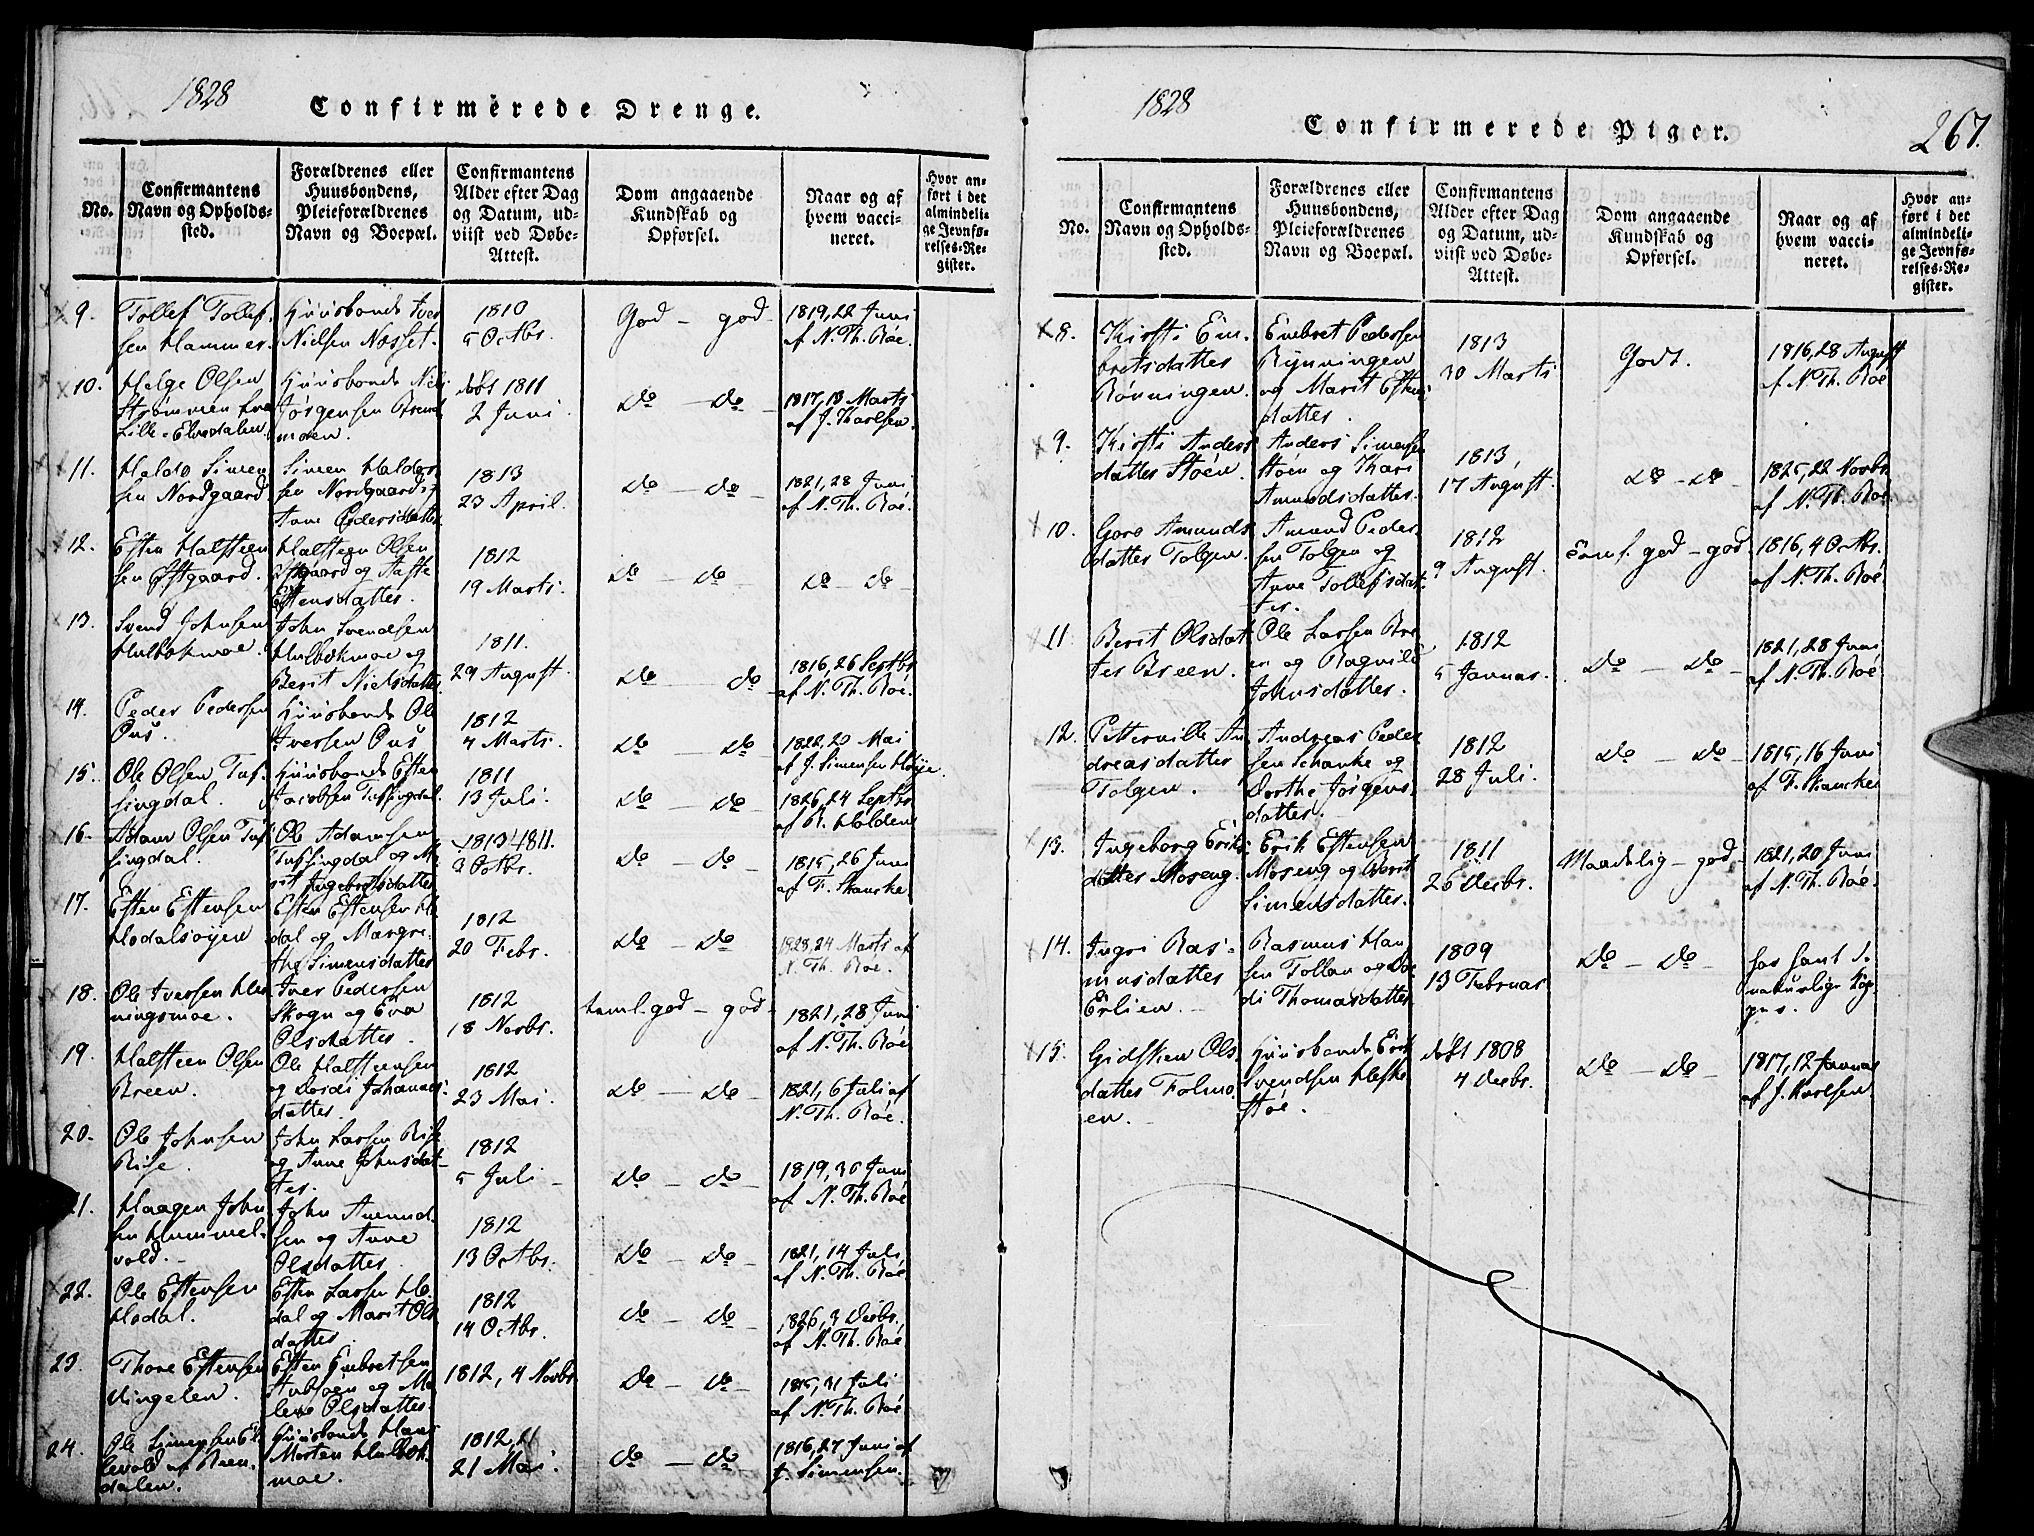 1828
Confirmerede Drenge.
No.
Confirmantens
Navn og Opholds-
sted.
Forældrenes eller
Huusbondens,
Pleieforældrenes
Navn og Boepæl.
Confirmantens
Alder efter Dag
og Datum, ud-
viist ved Døbe-
Attest.
Dom angaaende
Kundskab og
Opførsel.
Naar og af
hvem vacci-
neret.
Hvor an-
ført i det
almindeli-
ge Jevnfø-
relses-Re-
gister.
9.
Tollef Tollef-
sen Hammer.
Huusbonde Iver
Nielsen Nosset.
1810
5 Octbr.
God - god
1819, 22 Juni
af N. Th. Röe.
10.
Helge Olsen
Strömmen fra
Lille-Elvedalen.
Huusbonde Niels
Jörgensen
moen.
döbt 1811
2 Juni.
do - do
1817, 18 Marts
af J. Karlsen.
11.
Haldo Simen
sen Nordgaard.
Simen Haldor
sen Nordgaard
Anne Pedersdatter
1813
23 April.
do - do
1821, 28 Juni
af N. Th. Röe.
12.
Esten Halsteen
sen Östgaard.
Halsteen Olsen
Östgaard og
Estensdatter.
1812
19 Marts.
do - do
do - do
13.
Svend Johnsen
Hulbækmoe.
John Svendsen
Hulbækmoe og
Berit Nielsdatter
1811.
29 August.
do - do
1816, 26 Septbr
af N. Th. Röe.
14.
Peder Pedersen
Ous.
Huusbonde Ole
Iversen Ous
1812
4 Marts.
do - do
1822, 20 Mai
af J. Simensen
15.
Ole Olsen Tuf-
singdal.
Huusbonde Esten
Jacobsen Tufsingdal
1811
13 Juli.
do - do
1826, 24 Septbr
af R. Holden
16.
Adam Olsen Tuf
singdal.
Ole Adamsen
Tufsingdal og Ma
rit Ingebretsdatter
1811.
3 Octbr.
do - do
1815, 26 Juni
af F. Skancke
17.
Esten Estensen
Hodalsöyen
Esten Estensen Ho
dal og Margre
the Simensdatter
1812
20 Febr.
do - do
1828, 24 Marts af
N. Th. Röe.
18.
Ole Iversen Hen
ningsmoe.
Iver Pedersen
Skogn og Eva
Olsdatter.
1812
18 Novbr.
teml. god - god
1821, 28 Juni
af N. Th. Röe
19.
Halsteen Olsen
Breen.
Ole Halsteensen
og Dordi Johannes
datter.
1812
23 Mai.
do - do
1821, 6 Juli af
N. Th. Röe.
20.
Ole Johnsen
Rise.
John Larsen Rise
og Anne Johnsdat-
ter.
1812
5 Juli
do - do
1819, 30 Juni
af N. Th. Röe
21.
Haagen John
sen Hummel-
vold.
John Amund-
sen og Anne
Olsdatter.
1812
13 Octbr.
do - do
1821, 14 Juli
af N. Th. Röe
22.
Ole Estensen
Hodal.
Esten Larsen Ho-
dal og Marit Ols
datter
1812
14 Octbr.
do - do
1826, 3 Decbr.
af N. Th. Röe
23.
Thore Estensen
Vingelen.
Esten Embretsen
og Ma
lene Olsdatter.
1812, 4 Novbr
do - do
1815, 31 Juli
af N. Th. Röe
24.
Ole Simensen El
levold af Reen
dalen.
Huusbonde Hans
Morten Hulbæk
moe.
1812,
21 Mai.
do - do
1816, 27 Juni af
J. Simensen.
1828
Confirmerede Piger.
267.
No.
Confirmantens
Navn og Opholds-
sted.
Forældrenes eller
Huusbondens,
Pleieforældrenes
Navn og Boepæl.
Confirmantens
Alder efter Dag
og Datum, ud-
viist ved Døbe-
Attest.
Dom angaaende
Kundskab og
Opførsel.
Naar og af
hvem vacci-
neret.
Hvor an-
ført i det
almindeli-
ge Jevnfø-
relses-Re-
gister.
8.
Kirsti Em-
bretsdatter
Rönningen.
Embret Pedersen
Rönningen
og Marit Estens
datter.
1813
30 Marts
Godt.
1816, 28 August
af N. Th. Röe
9.
Kirsti Anders
datter Stöen.
Anders Simensen
Stöen og Kari
Amundsdatter.
1813,
17 August.
do - do
1825, 22 Novbr.
af N. Th. Röe.
10.
Goro Amunds
datter Tolgen.
Amund Peder-
sen Tolgen og
Anne Tollefsdat-
ter.
1812
9 August.
teml. god - god
1816, 4 Octbr.
af N. Th. Röe
11.
Berit Olsdat
ter Breen.
Ole Larsen Bre
en og Ragnild
Johnsdatter.
1812
5 Januar.
do - do
1821, 28 Juni
af N. Th. Röe
12.
Petterville An
dreasdatter
Tolgen.
Andreas Peder
sen Schanke og
Dorthe Jörgens
datter.
1812
28 Juli.
do - do
1815, 16 Juni
af F. Skancke
13.
Ingeborg Eriks
datter Moseng.
Erik Estensen
Moseng og Berit
Simensdatter.
1811
26 Decbr.
Maadelig - god
1821, 20 Juni
af N. Th. Röe.
14.
Ingri Ras-
musdatter
Erlien.
Rasmus Han
sen Tollan og Dor
di Thomasdatter
1809
13 Februar
do - do
har havt de
naturlige Kop
per.
15.
Gidskien Ols
datter Folmo
en.
Huusbonde Erik
Svendsen Hefte
stöe.
döbt 1808
4 Decbr.
do - do
1817, 12 Januar
af J. Karlsen